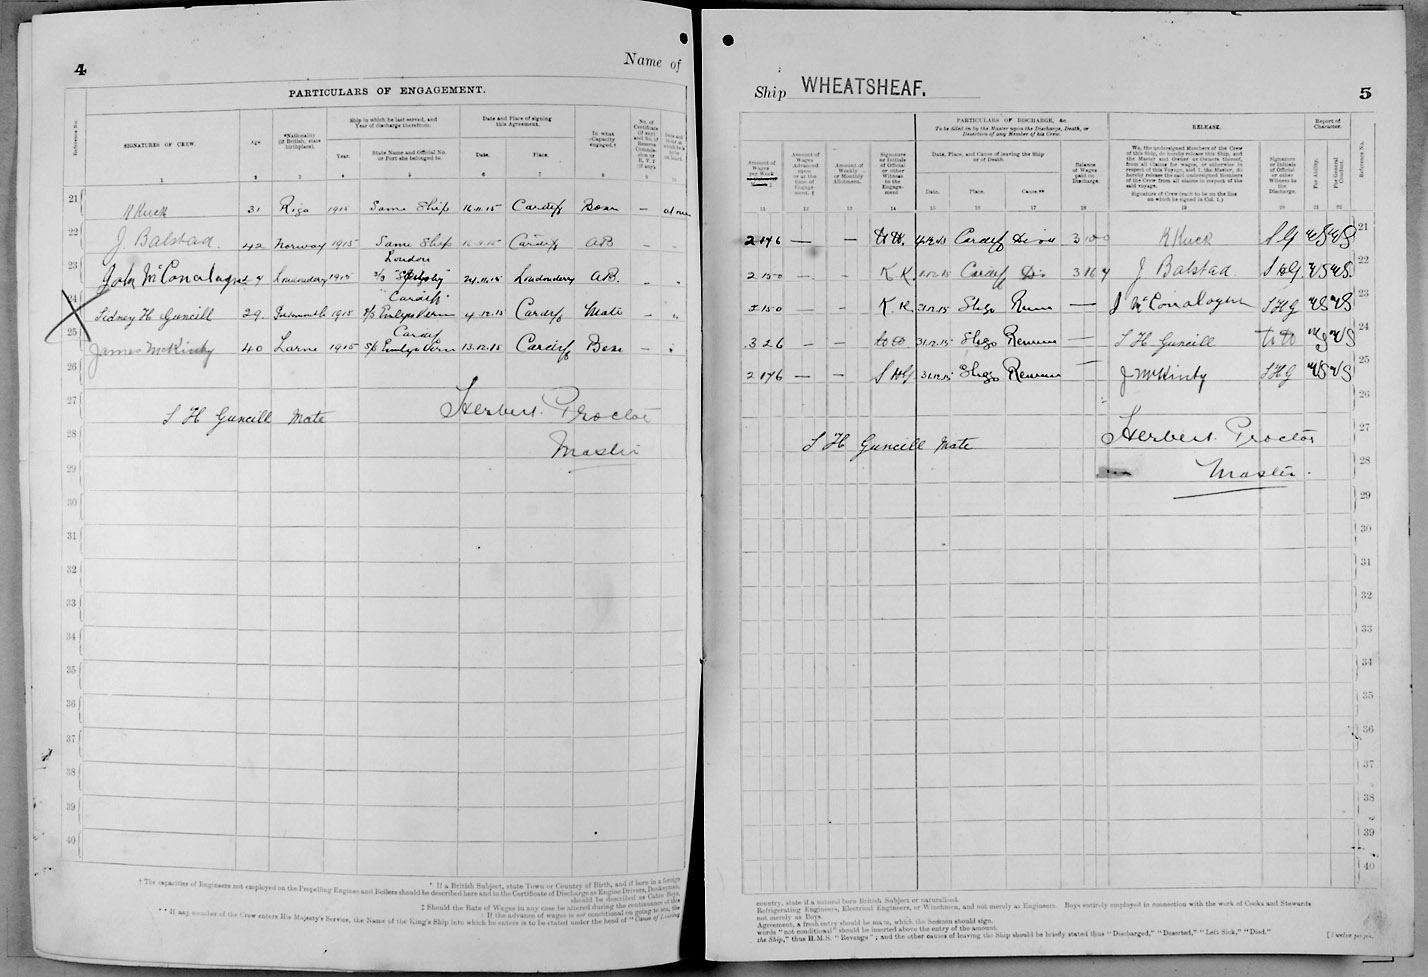 4
Name of
PARTICULARS OF ENGAGEMENT.
Reference No.
SIGNATURES OF CREW.
Age.
*Nationality (If British, state birthplace).
Ship in which he last served, and Year of discharge therefrom.
Year.
State Name and Official No. or Port she belonged to.
Date and Place of signing this Agreement.
Date.
Place.
In what Capacity engaged.†
1 2 3 4 5 6 7 8 9 10
21 K Kuck 31 Riga 1915 Same Ship 16.11.15 Cardiff Bosn — at once
22 J. Balstad. 42 Norway 1915 Same Ship 16.11.15 Cardiff AB —
London
23 John McConalogue 27 Londonderry 1915 24.11.15 Londonderry AB. — "
"Cardiff"
24 Sidney H Guncill 29. 1915 4.12.15 Cardiff Mate — "
Cardiff
25 James McKinty 40 Larne 1915 13.12.15 Cardiff Bosn — "
26
27
S H Guncill Mate Herbert Proctor
28
Master
29
30
31
32
33
34
35
36
37
38
39
40
* If a British Subject, state Town or Country of Birth, and if born in a foreign
† The capacities of Engineers not employed on the Propelling Engines and Boilers should be described here and in the Certificate of Discharge as Engine Drivers, Donkeymen,
should be described as Cabin Boys.
‡ Should the Rate of Wages in any case be altered during the continuance of this
If the advance of wages is not conditional on going to sea, the
** If any member of the Crew enters His Majesty's Service, the Name of the King's Ship into which he enters is to be stated under the head of "Cause of Leaving
Ship WHEATSHEAF.
5
PARTICULARS OF DISCHARGE, &c.
To be filled in by the Master upon the Discharge, Death, or Desertion of any Member of his Crew.
RELEASE.
Report of Character.
Amount of Wages per Week
Amount of Wages Advanced upon or at the time of Engagement. ‡
Amount of Weekly or Monthly Allotment.
Signature or Initials of Official or other Witness to the Engagement
Date, Place, and Cause of leaving the Ship or of Death.
Date.
Place.
Cause.**
Balance of Wages paid on Discharge.
We, the undersigned Members of the Crew of this Ship, do hereby release this Ship, and the Master and Owner or Owners thereof, from all Claims for wages, or otherwise in respect of this Voyage, and I, the Master, do hereby release the undersigned Members of the Crew from all claims in respect of the said voyage.
Signature of Crew (each to be on the line on which he signed in Col. 1.)
Signature or Initials of Official or other Witness to the Discharge.
For Ability.
For General Conduct.
Reference No.
11 12 13 14 15 16 17 18 19 20 21 22
2 17 6 — — Cardiff 3 10 0 K Kuck VG VG 21
2 15 0 — — K.K. Cardiff Do 3 16 4 J Balstad. VG VG 22
2 15 0 — — K.K. 31.12.15 Sligo — J McConalogue S H G VG VG 23
3 2 6 — — 31.12.15 Sligo — S H Guncill VG VG 24
2 17 6 — — S H G 31.12.15 Sligo — J McKinty S H G VG VG 25
26
Herbert Proctor 27
S H Guncill Mate
Master. 28
29
30
31
32
33
34
35
36
37
38
39
40
country, state if a natural born British Subject or naturalised.
Refrigerating Engineers, Electrical Engineers, or Winchmen, and not merely as Engineers. Boys entirely employed in connection with the work of Cooks and Stewards
not merely as Boys.
Agreement, a fresh entry should be made, which the Seamen should sign.
words "not conditional" should be inserted above the entry of the amount.
the Ship," thus H.M.S. "Revenge"; and the other causes of leaving the Ship should be briefly stated thus "Discharged," "Deserted," "Left Sick," "Died."